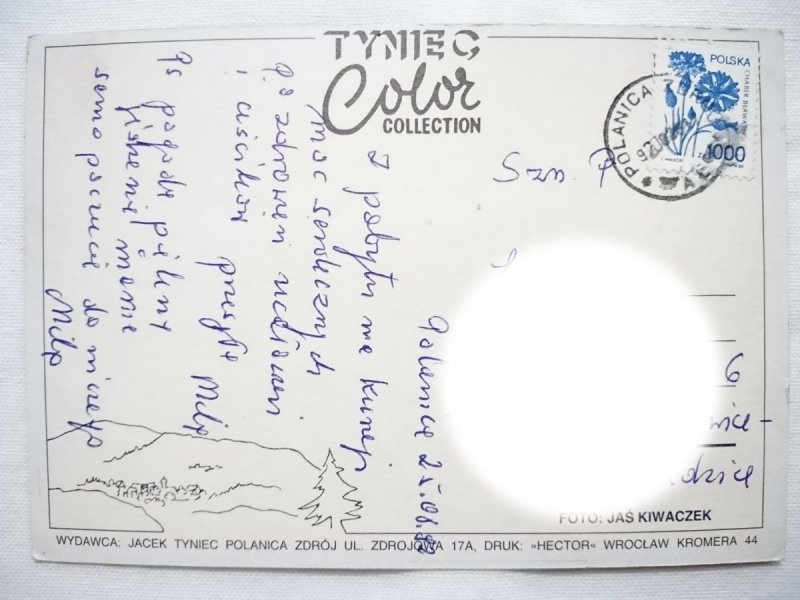 TYNIEC
Color
COLLECTION
POLSKA
CHABER BŁAWATEK
1000
POLANICA ZDRÓJ
Szn. P
6
Polanica 25.06.92
z pobytu na kuracji
moc serdecznych
pozdrowień ucałowań
i uścisków przesyła
Mila
Ps pogoda piękna
jedzenie
samopoczucie do niczego
Mila
FOTO: JAŚ KIWACZEK
WYDAWCA: JACEK TYNIEC POLANICA ZDRÓJ UL. ZDROJOWA 17A, DRUK: »HECTOR« WROCŁAW KROMERA 44